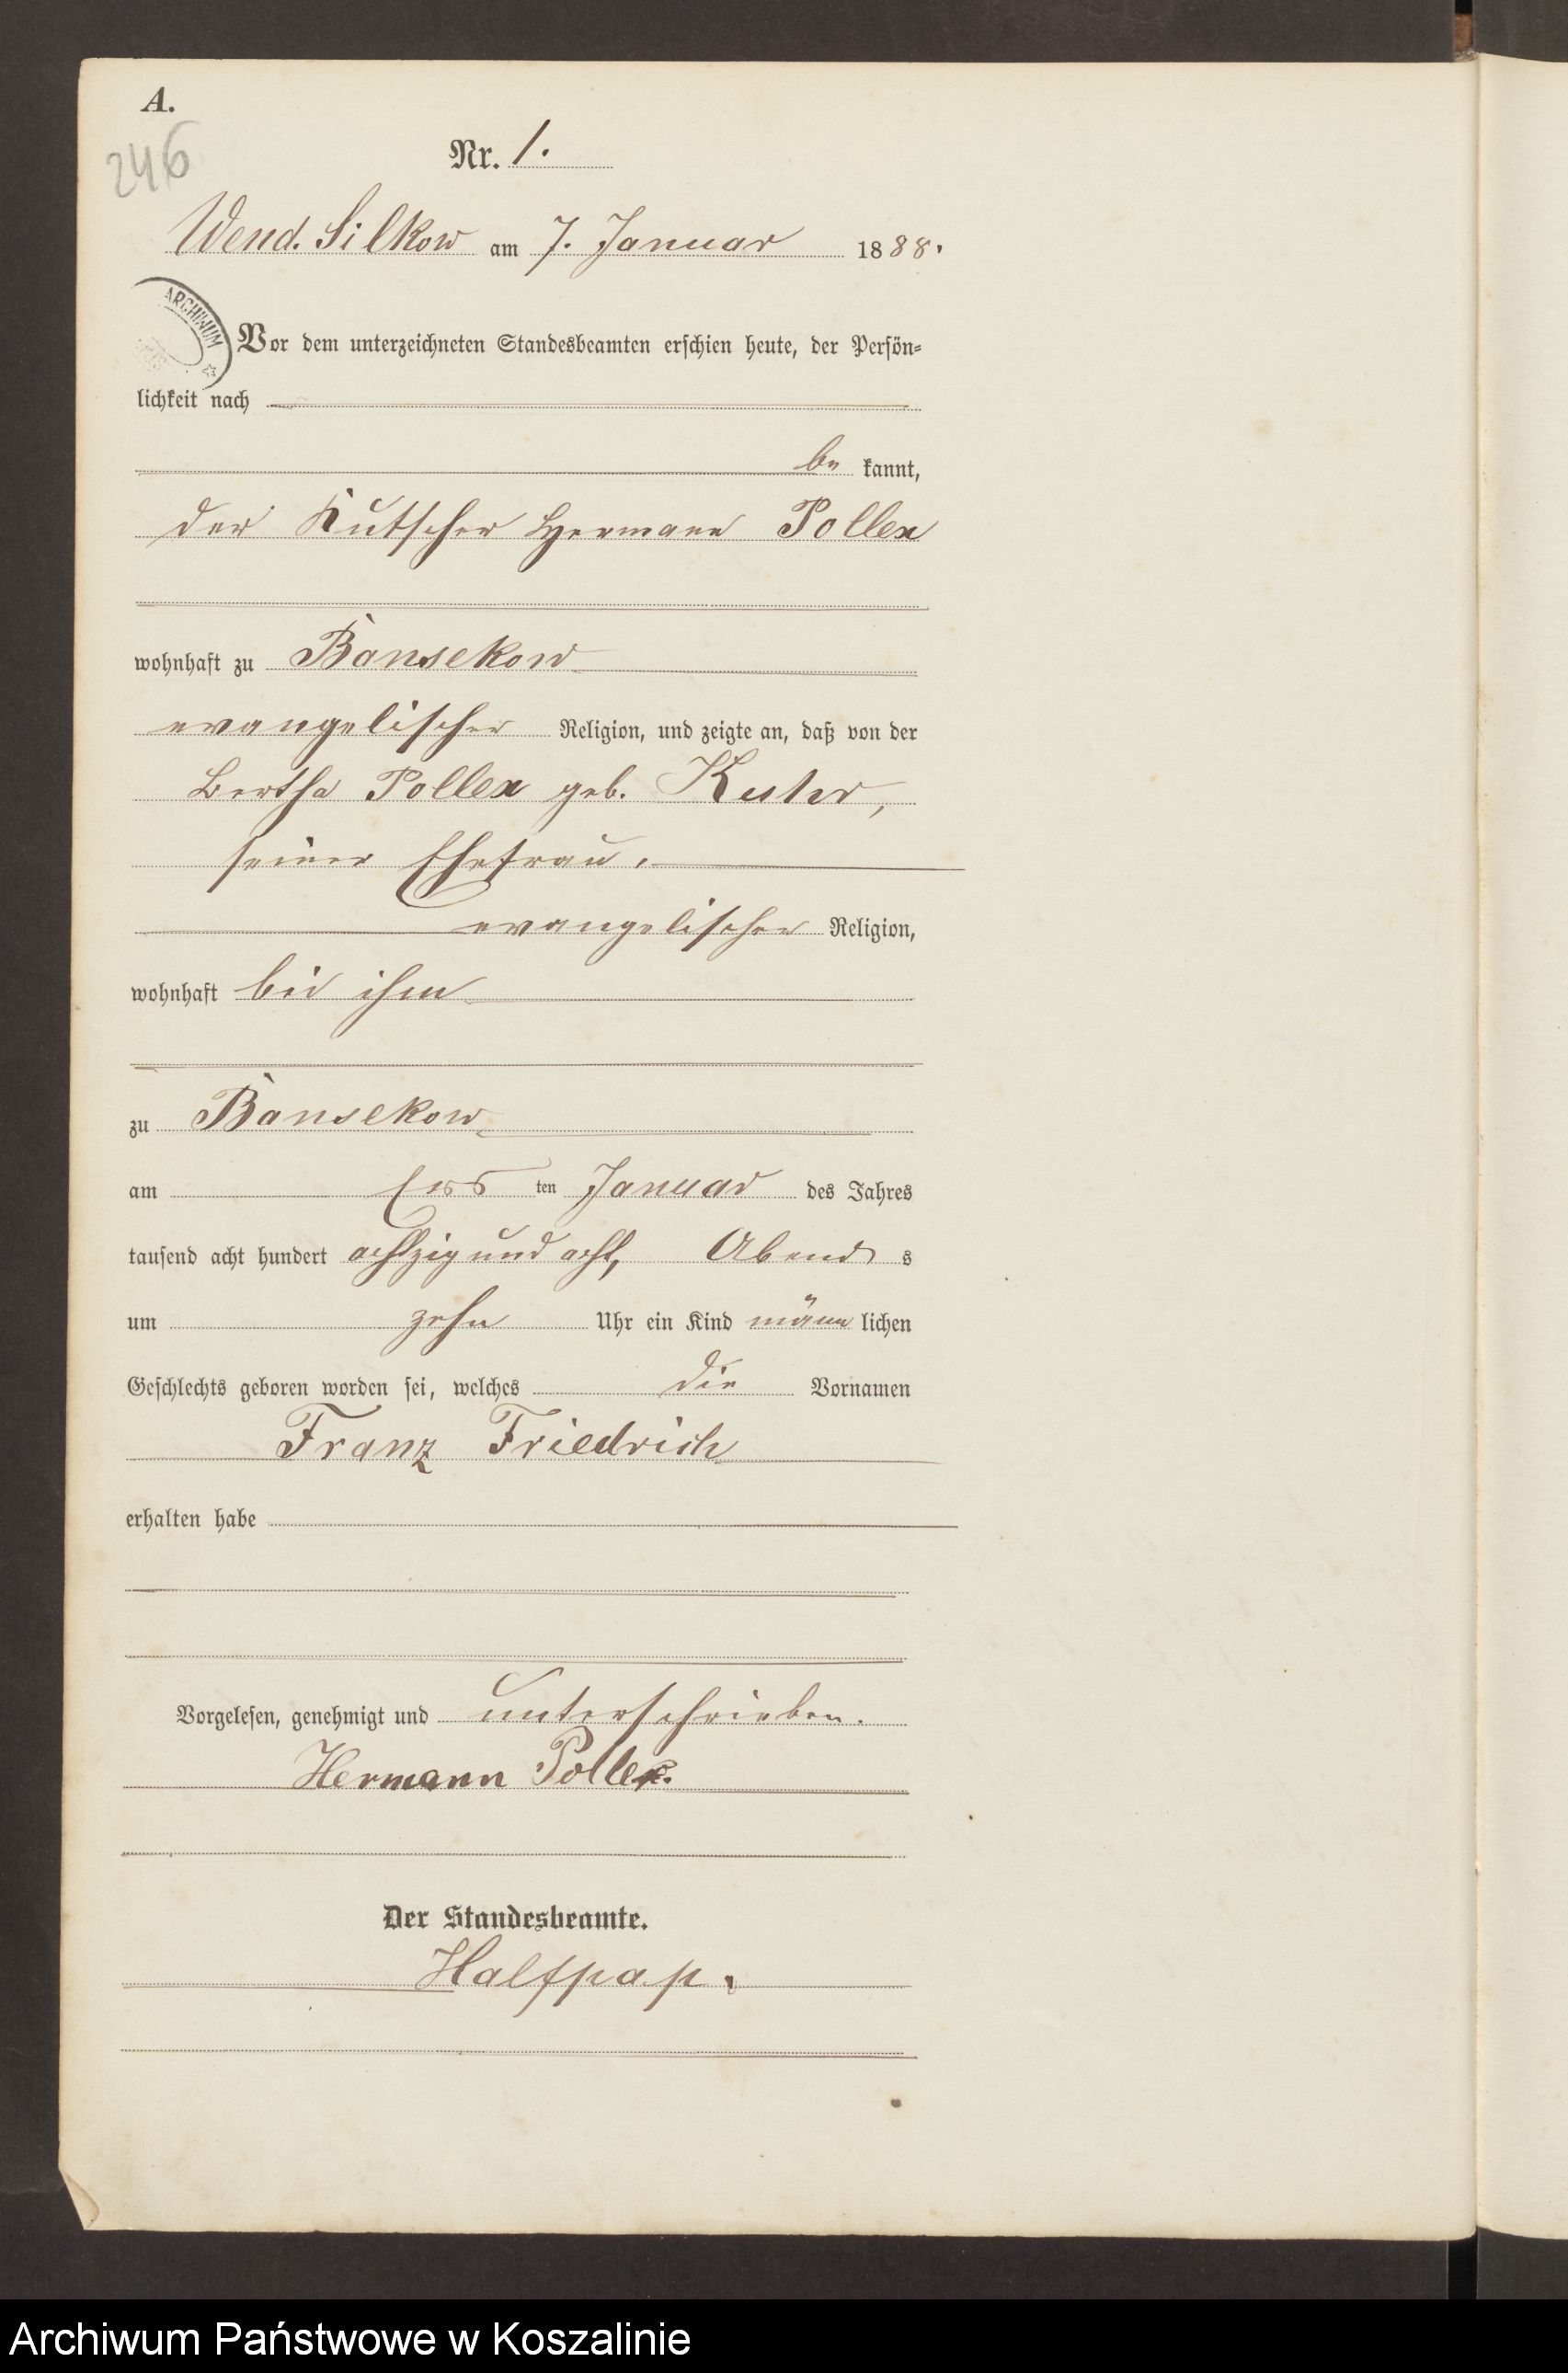 A.
246
Nr. 1.
Wend. Silkow am 7. Januar 1888.
ARCHIWUM
Vor dem unterzeichneten Standesbeamten erschien heute, der Persön=
lichkeit nach
be kannt,
der Kutscher Hermann Pollex
wohnhaft zu Bansekow
evangelischer Religion, und zeigte an, daß von der
Bertha Pollex geb. Kuter,
seiner Ehefrau.
evangelischer Religion,
wohnhaft bei ihm
zu Bansekow
am Ers ten Januar des Jahres
tausend acht hundert achtzig und acht, Abend s
um zehn Uhr ein Kind männ lichen
Geschlechts geboren worden sei, welches die Vornamen
Franz Friedrich
erhalten habe
Vorgelesen, genehmigt und unterschrieben.
Hermann Pollex.
Der Standesbeamte.
Halfpap.
Archiwum Państwowe w Koszalinie